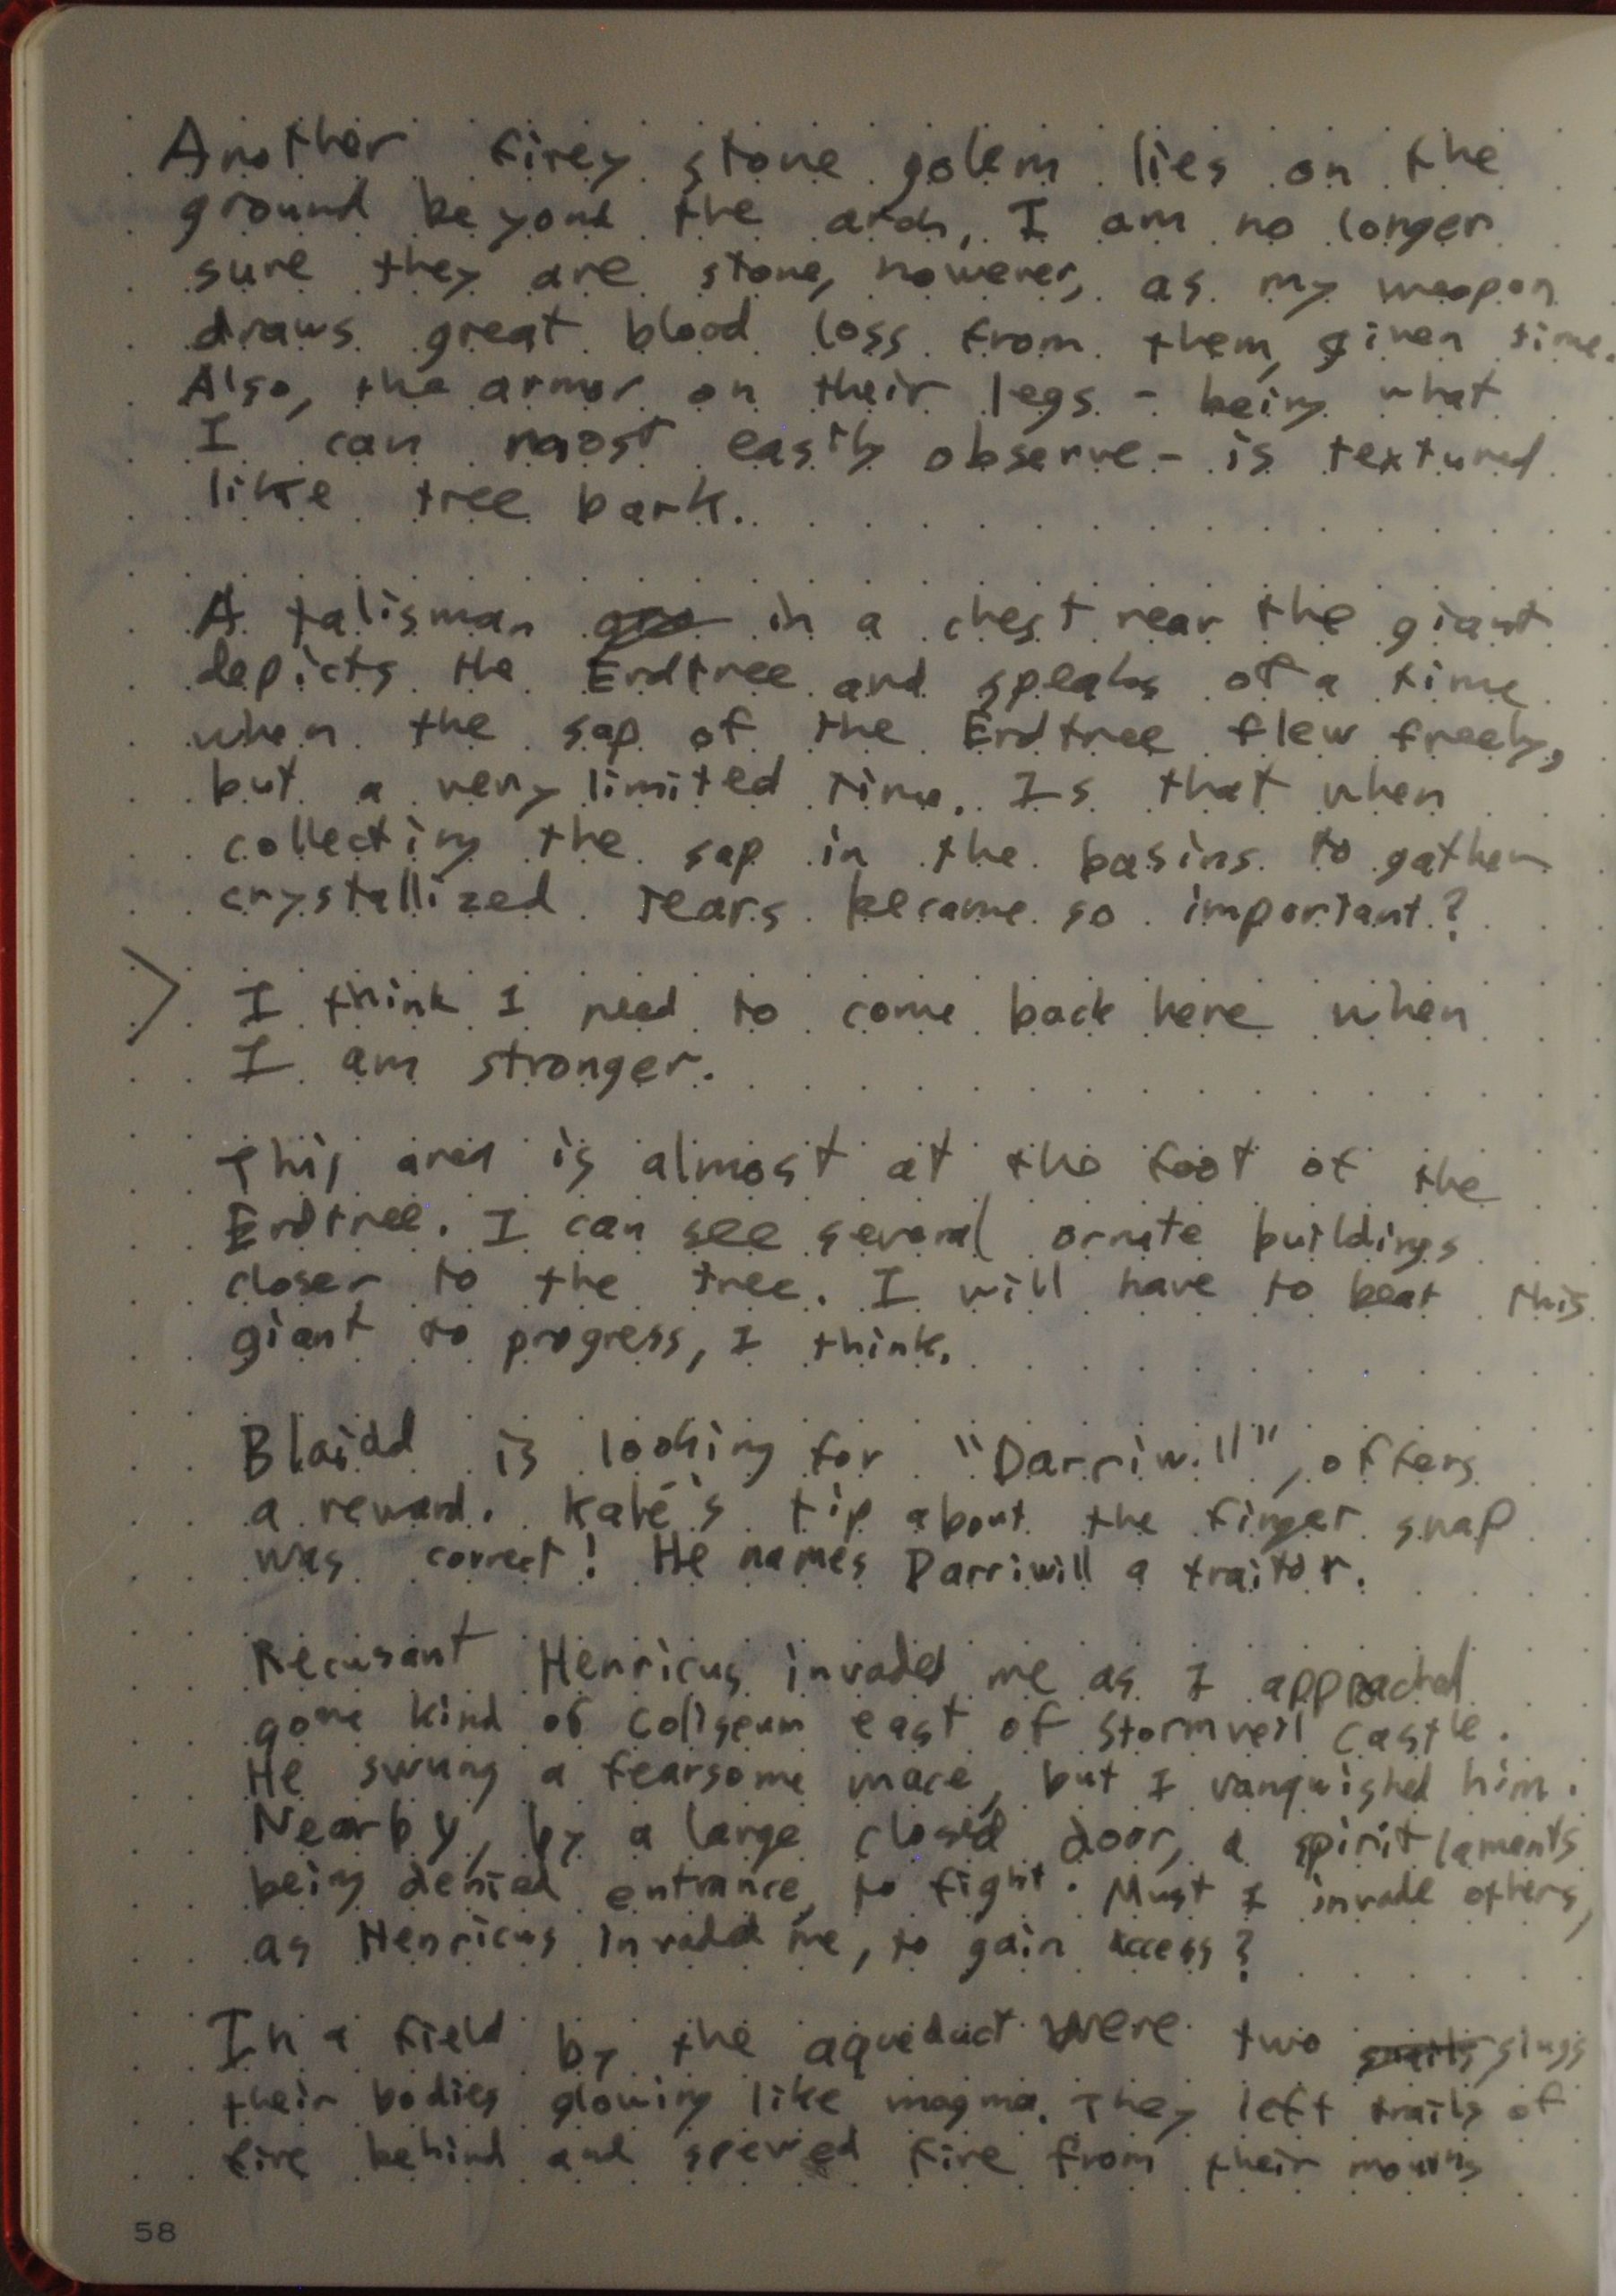 Another firey stone golem lies on the
ground beyond the arch, I am no longer
sure they are stone, however, as my weapon
draws great blood loss from them, given time.
Also, the armor on their legs - being what
I can most easily observe - is textured
like tree bark.
A talisman in a chest near the giant
depicts the Erdtree and speaks of a time
when the sap of the Erdtree flew freely,
but a very limited time. Is that when
collecting the sap in the basins to gather
crystallized tears became so important?
> I think I need to come back here when
I am stronger.
This area is almost at the foot of the
Erdtree. I can see several ornate buildings
closer to the tree. I will have to beat this
giant to progress, I think.
Blaidd is looking for "Darriwill", offers
a reward. Kalé's tip about the finger snap
was correct! He names Darriwill a traitor.
Recusant Henricus invaded me as I approached
some kind of coliseum east of Stormveil Castle.
He swung a fearsome mace, but I vanquished him.
Nearby, by a large closed door, a spirit laments
being denied entrance, to fight. Must I invade others,
as Henricus invaded me, to gain access?
In a field by the aqueduct were two snails slugs
their bodies glowing like magma. They left trails of
fire behind and spewed fire from their mouths
58